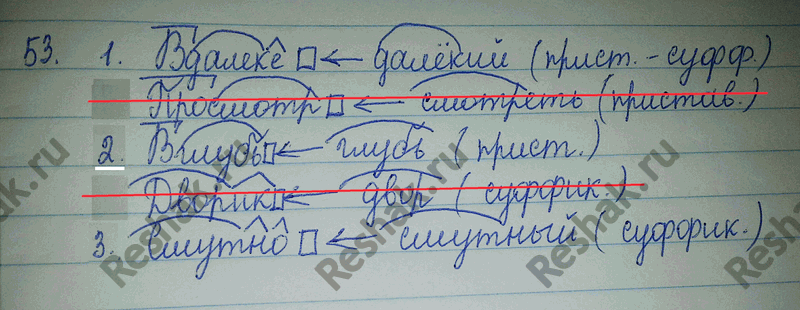 53. 1. Вдалеке ← далёкий (прист. - суфф.)
Просмотр ← смотреть (пристав.)
2. Вглубь ← глубь (прист.)
Дворик ← двор (суффик.)
3. Смутно ← смутный (суффик.)
Reshak.ru
Reshak.ru
Reshak.ru
Reshak.ru